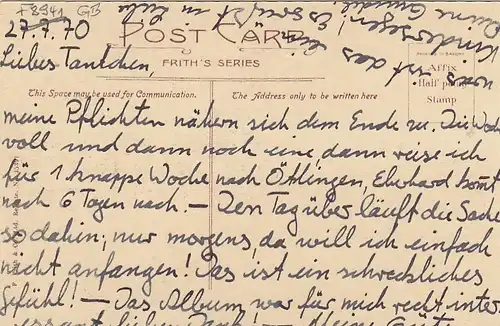 F8941 GB
27.7.70
POST CARD
Liebes Tantchen,
FRITH'S SERIES
Affix
Half penny
Stamp
This Space may be used for Communication.
The Address only to be written here
meine Pflichten nähern sich dem Ende zu. Die Woche
voll und dann noch eine dann reise ich
für 1 knappe Woche nach Öttlingen, Eberhard kommt
nach 6 Tagen nach. — Den Tag über läuft die Sache
so dahin; nur morgens, da will ich einfach
nicht anfangen! Das ist ein schreckliches
Gefühl! — Das Album war für mich recht inter
essant, lieben Dank! —
Kindersegen!
was ist das